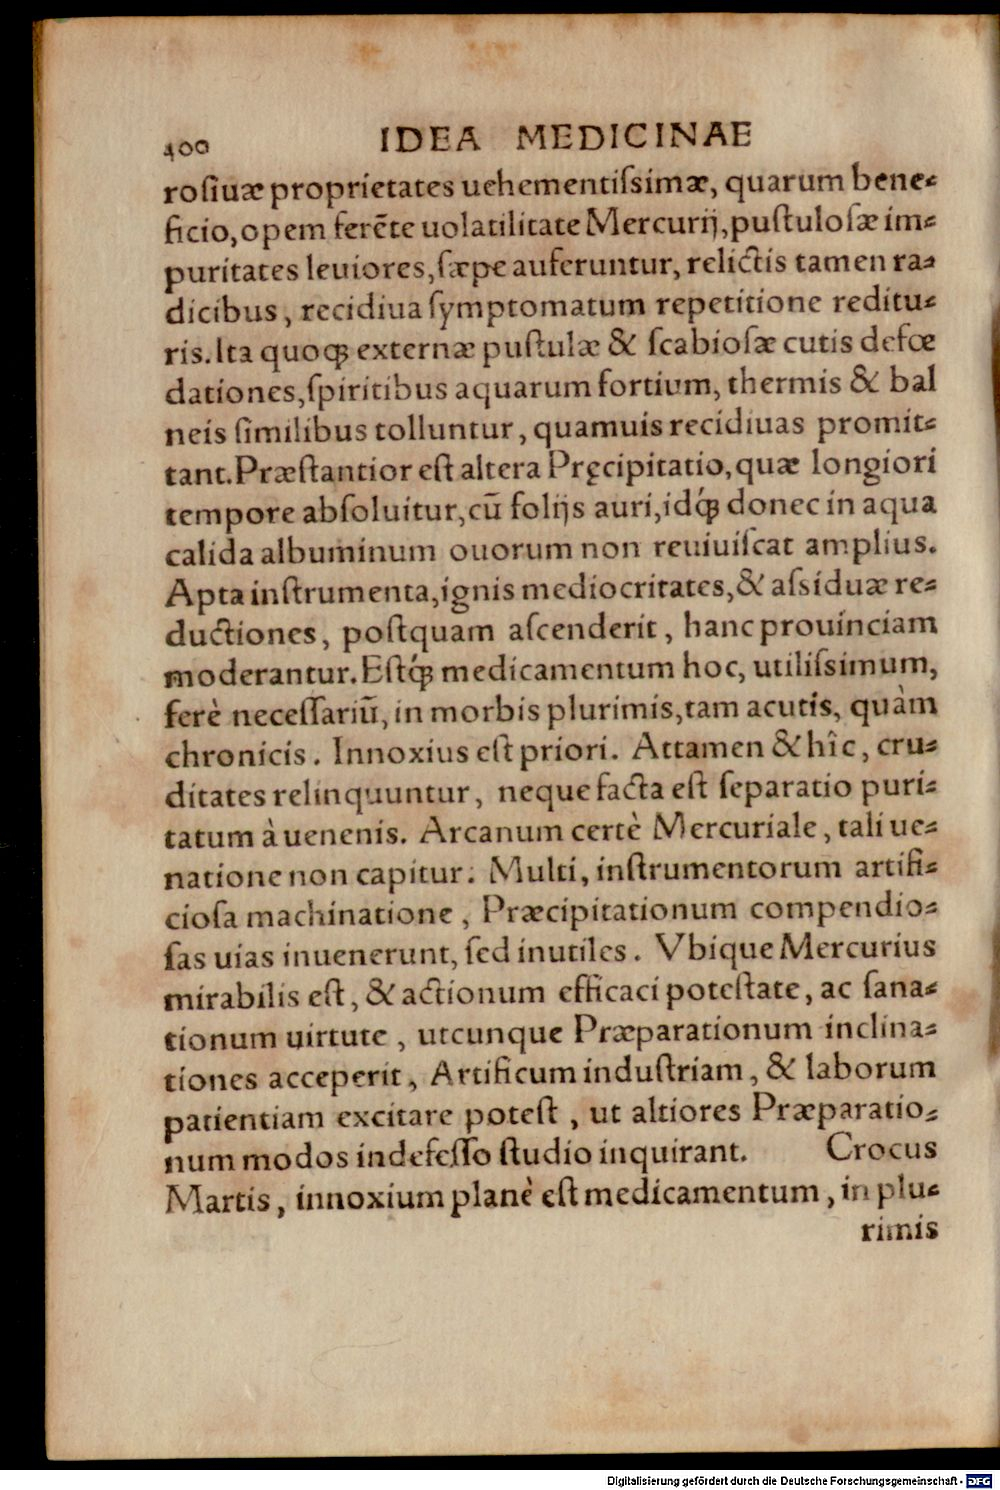 400 IDEA MEDICINAE
rosiuæ proprietates uehementissimæ, quarum bene-
ficio, opem ferẽte uolatilitate Mercurij, pustulosæ im-
puritates leuiores, sæpe auferuntur, relictis tamen ra-
dicibus, recidiua symptomatum repetitione reditu-
ris. Ita quoqꝫ externæ pustulæ & scabiosæ cutis defœ
dationes, spiritibus aquarum fortium, thermis & bal
neis similibus tolluntur, quamuis recidiuas promit-
tant. Præstantior est altera Pręcipitatio, quæ longiori
tempore absoluitur, cũ folijs auri, idq́ꝫ donec in aqua
calida albuminum ouorum non reuiuiscat amplius.
Apta instrumenta, ignis mediocritates, & assiduæ re-
ductiones, postquam ascenderit, hanc prouinciam
moderantur. Estq́ꝫ medicamentum hoc, utilissimum,
ferè necessariũ, in morbis plurimis, tam acutis, quàm
chronicis. Innoxius est priori. Attamen & hîc, cru-
ditates relinquuntur, neque facta est separatio puri-
tatum à uenenis. Arcanum certè Mercuriale, tali ue-
natione non capitur. Multi, instrumentorum artifi-
ciosa machinatione, Præcipitationum compendio-
sas uias inuenerunt, sed inutiles. Vbique Mercurius
mirabilis est, & actionum efficaci potestate, ac sana-
tionum uirtute, utcunque Præparationum inclina-
tiones acceperit, Artificum industriam, & laborum
patientiam excitare potest, ut altiores Præparatio-
num modos indefesso studio inquirant. Crocus
Martis, innoxium planè est medicamentum, in plu-
rimis
Digitalisierung gefördert durch die Deutsche Forschungsgemeinschaft - DFG